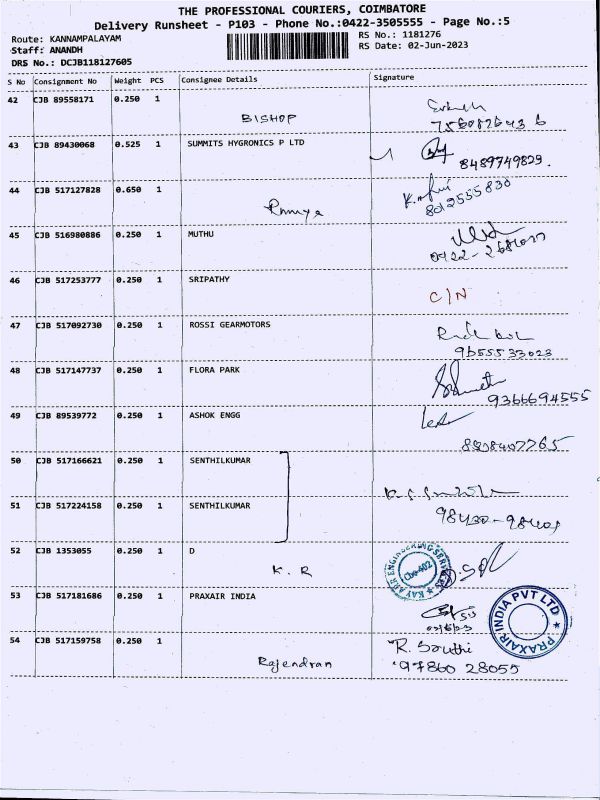 THE PROFESSIONAL COURIERS, COIMBATORE
Delivery Runsheet - P103 - Phone No.:0422-3505555 - Page No.:5
Route: KANNAMPALAYAM RS No.: 1181276
Staff: ANANDH RS Date: 02-Jun-2023
DRS No.: DCJB118127605
S No Consignment No Weight PCS Consignee Details Signature
42 CJB 89558171 0.250 1
BISHOP
43 CJB 89430068 0.525 1 SUMMITS HYGRONICS P LTD
8489749829.
44 CJB 517127828 0.650 1
8012555830
45 CJB 516980886 0.250 1 MUTHU
46 CJB 517253777 0.250 1 SRIPATHY
C/N
47 CJB 517092730 0.250 1 ROSSI GEARMOTORS
9655533023
48 CJB 517147737 0.250 1 FLORA PARK
9366694555
49 CJB 89539772 0.250 1 ASHOK ENGG
50 CJB 517166621 0.250 1 SENTHILKUMAR
51 CJB 517224158 0.250 1 SENTHILKUMAR
52 CJB 1353055 0.250 1 D
K. R
53 CJB 517181686 0.250 1 PRAXAIR INDIA
PRAXAIR INDIA PVT LTD
54 CJB 517159758 0.250 1
Rajendran
R. Southi
97860 28055